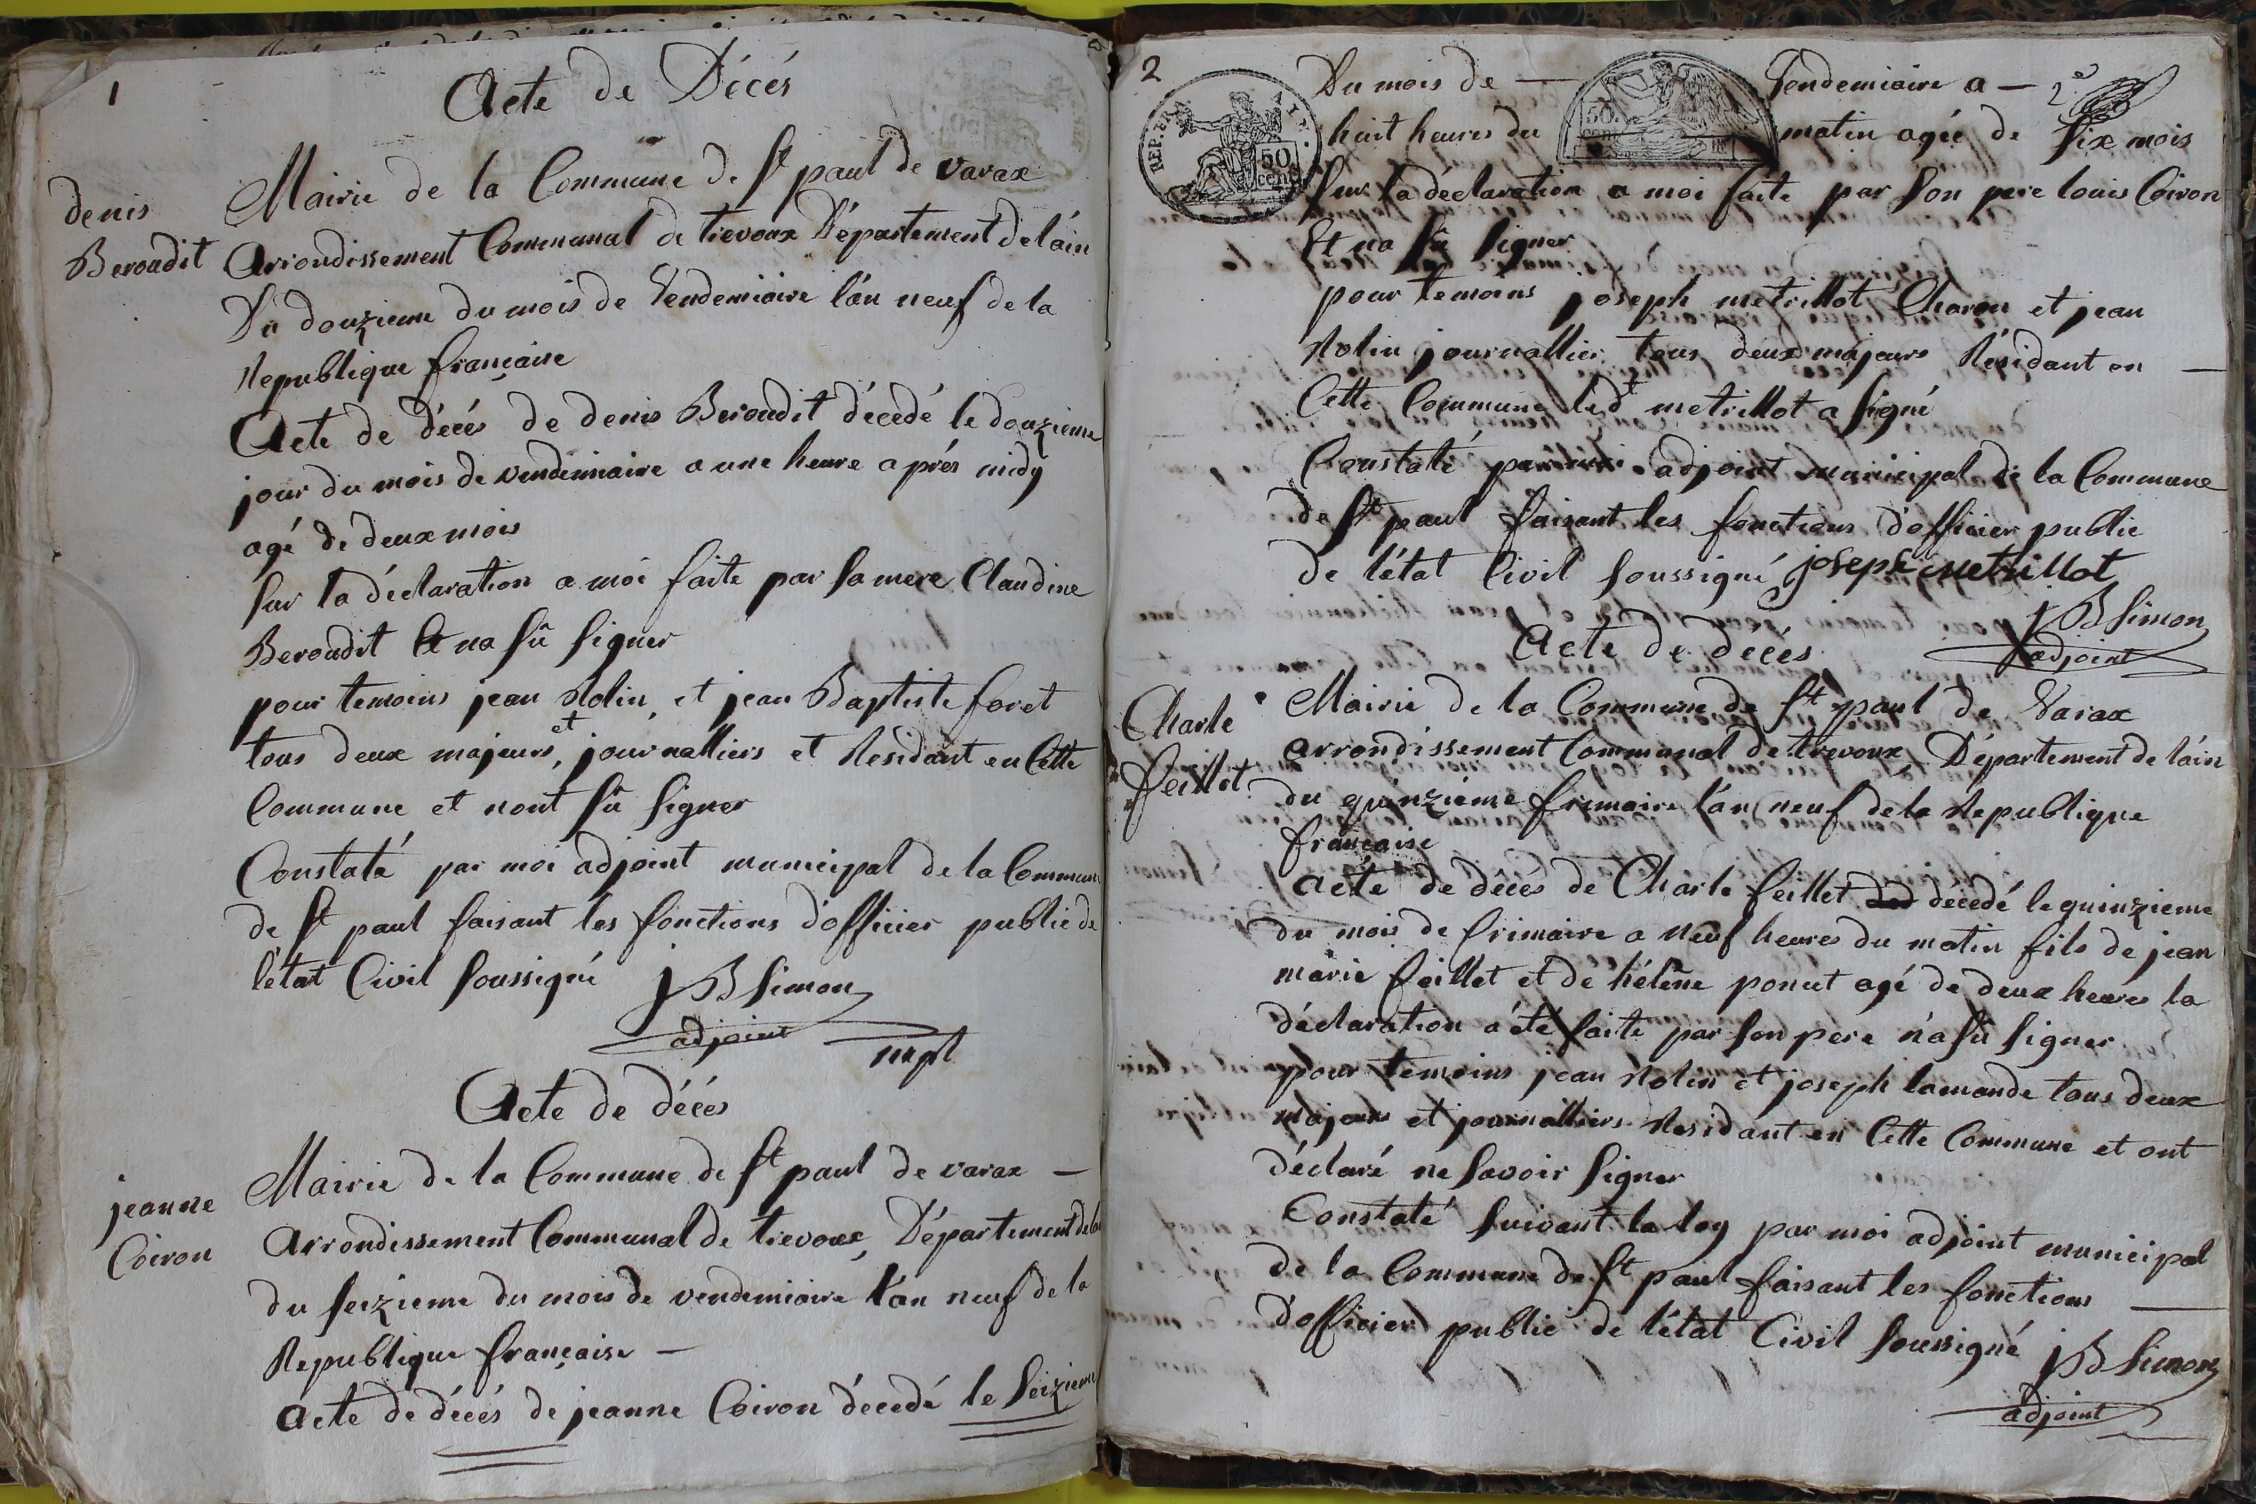 1
Acte de Décés
denis
Beroudit
Mairie de la Commune de St paul de varax
Arrondissement Communal de trevoux Département de láin
Du douzieme du mois de Vendemiaire l'an neuf de la
Republique française
Acte de décés de denis Beroudit décedé le douzieme
jour du mois de vendemiaire a une heure aprés midy
agé de deux mois
sur la déclaration a moi faite par sa mere Claudine
Beroudit Et na sû signer
pour temoins jean Nolin et jean Baptiste foret
tous deux majeurs, et journalliers et Residant en Cette
Commune et nont sû signer
Constaté par moi adjoint municipal de la Commune
de St paul faisant les fonctions d'officier public de
l'état Civil soussigné JB Simon
adjoint
mpl
Acte de décés
jeanne
Coiron
Mairie de la Commune de St paul de varax —
Arrondissement Communal de trevoux, Département de
du seizieme du mois de vendemiaire l'an neuf de la
Republique française —
Acte de décés de jeanne Coiron décedé le seizieme
2
Du mois de — Vendemiaire a — 2e
REP. FRA
50 cent
50 cent
huit heures du matin agée de six mois
sur la déclaration a moi faite par son pere louis Coiron
Et na sû signer
pour temoins joseph metrillot Charon et jean
Nolin journallier tous deux majeurs Résidant en —
Cette Commune ledt metrillot a signé
Constaté par moi adjoint municipal de la Commune
de St paul faisant les fonctions d'officier public
de l'état Civil soussigné joseph metrillot
JB Simon
adjoint
Acte de décés
Charle
feillet
Mairie de la Commune de St paul de Varax
arrondissement Communal de trevoux, Département de láin
du quinzième frimaire l'an neuf de la Republique
française
acte de décés de Charle feillet décedé le quinzieme
du mois de frimaire a neuf heures du matin fils de jean
marie feillet et de hélêne ponut agé de deux heures la
déclaration a été faite par son pere n'a sû signer
pour temoins jean Nolin et joseph lamande tous deux
majeurs et journalliers Residant en Cette Commune et ont
déclaré ne savoir signer
Constaté suivant la loy par moi adjoint municipal
de la Commune de St paul faisant les fonctions —
d'officier public de l'état Civil soussigné JB Simon
adjoint